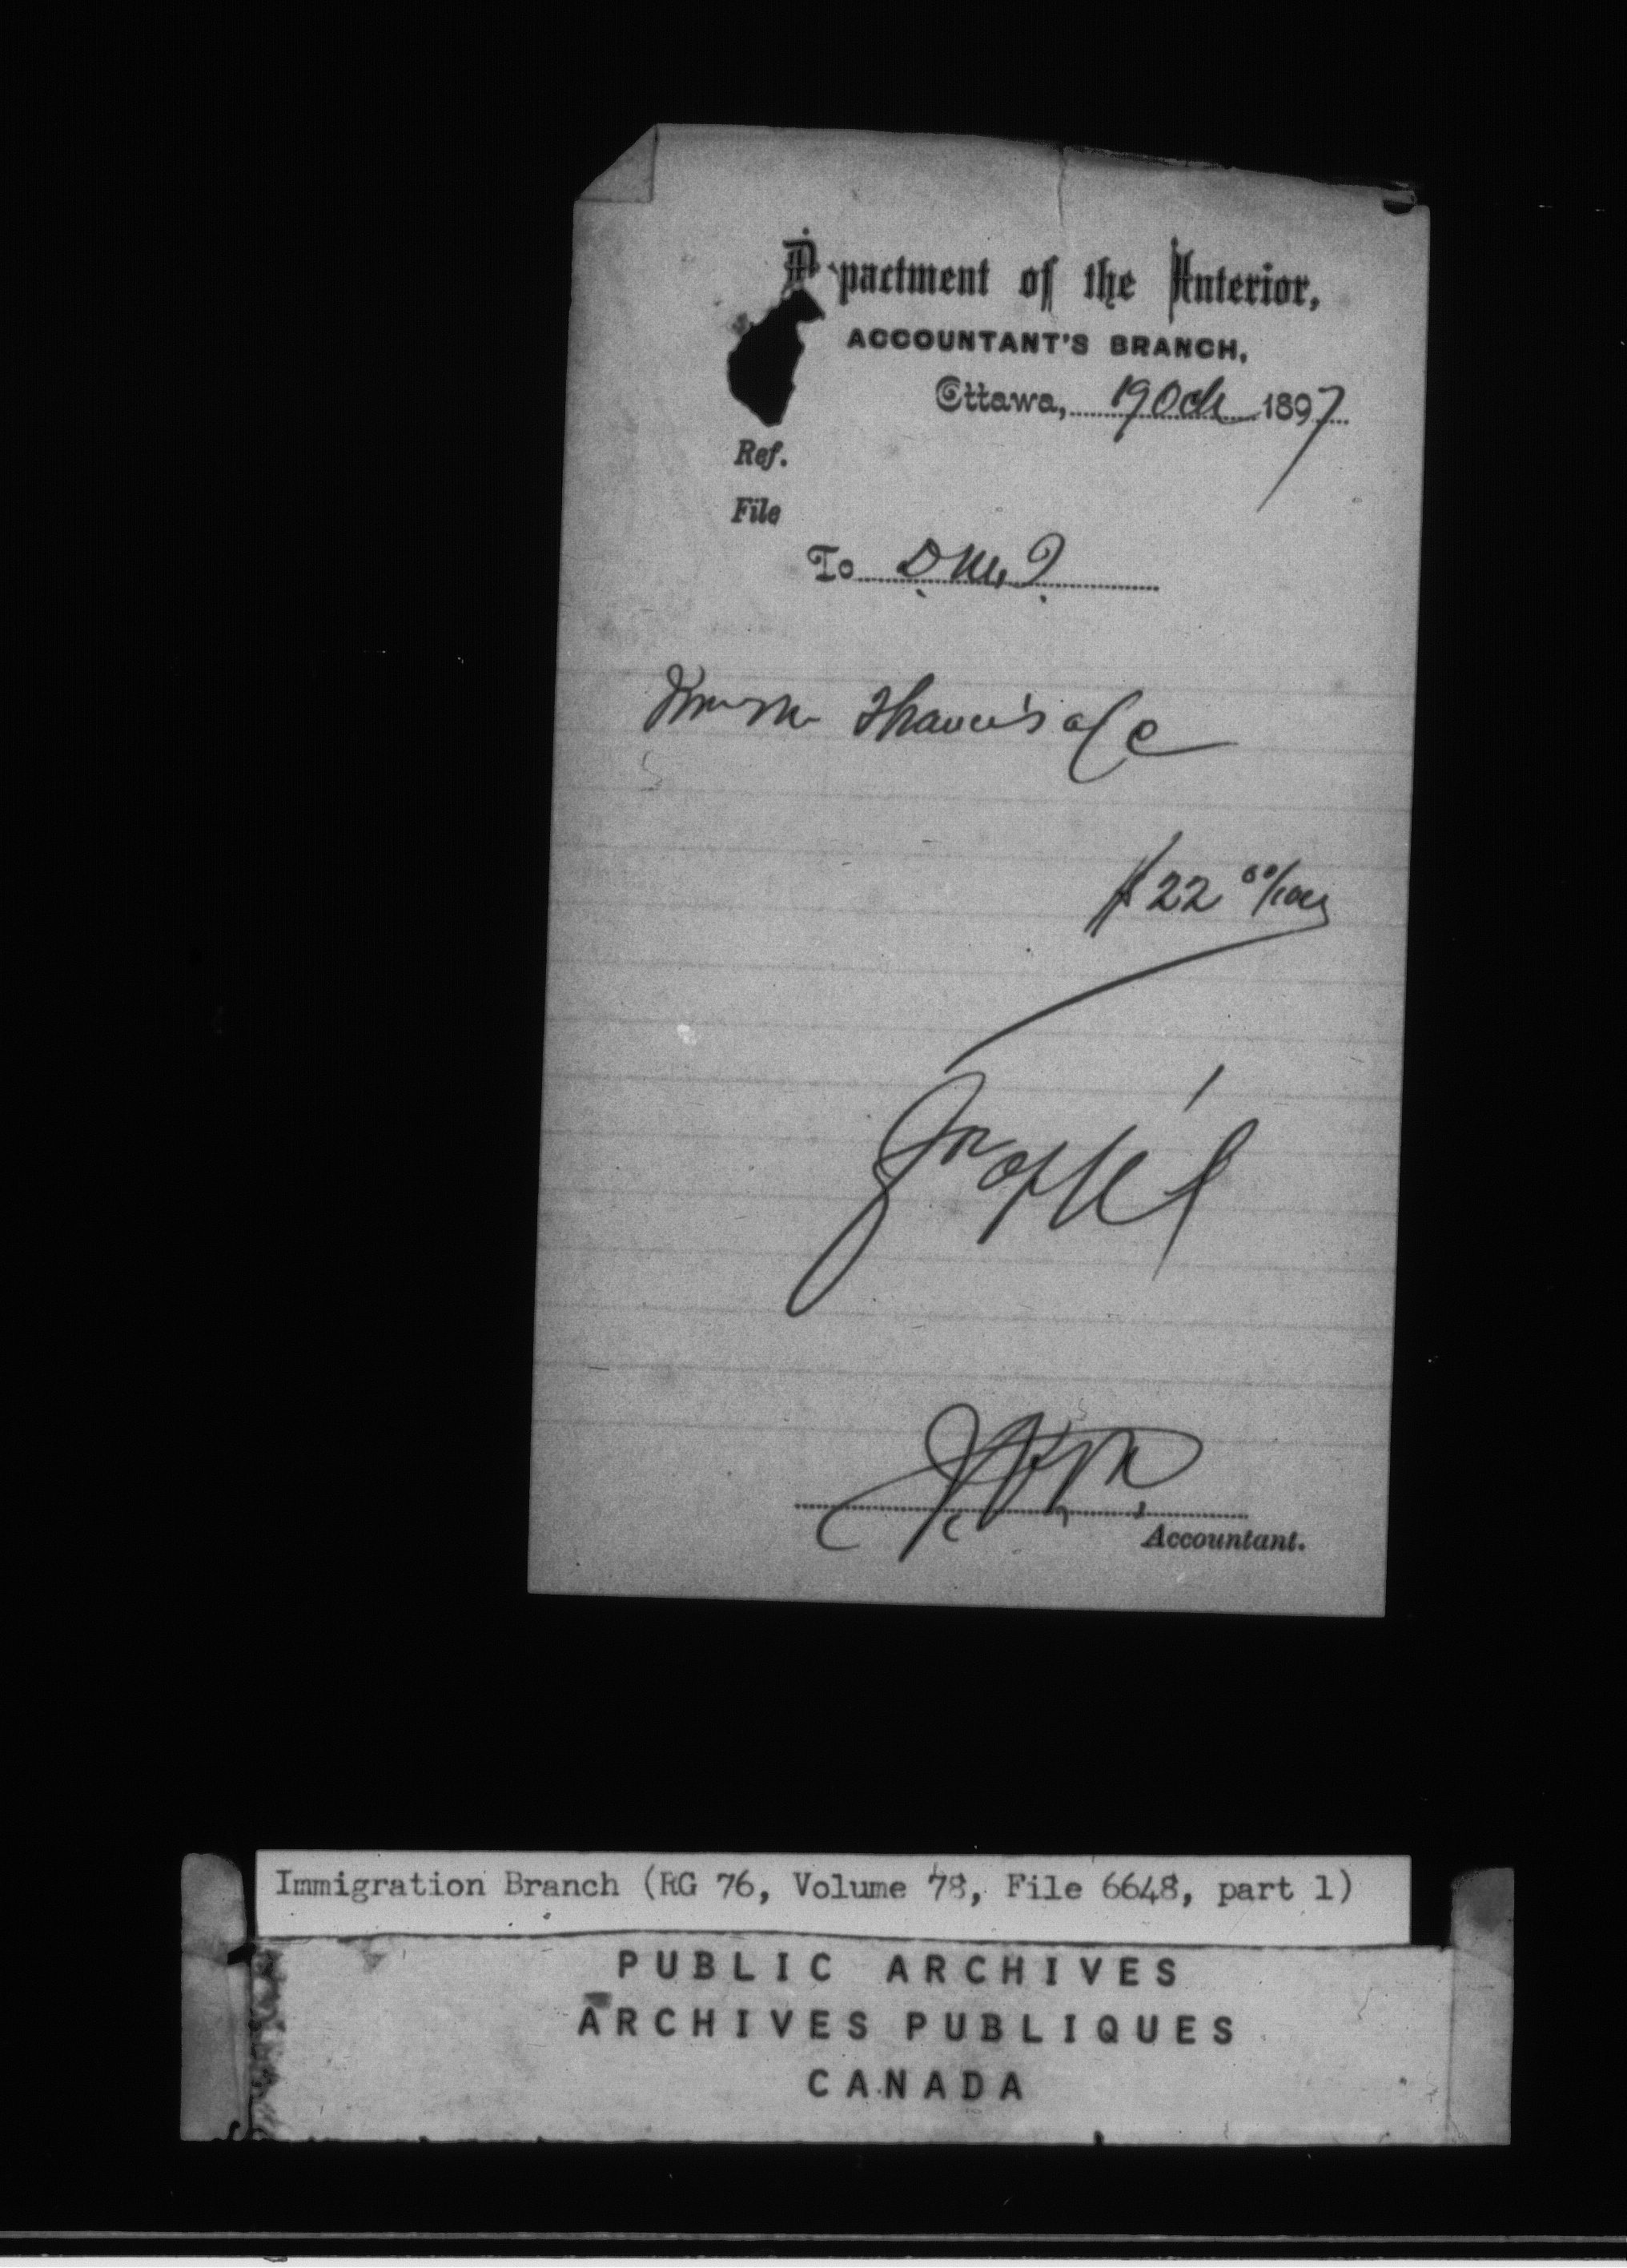 Department of the Interior,
ACCOUNTANT'S BRANCH,
Ottawa, 19 Oct 1897
Ref.
File
To D.M.I.
a/c
$22 00/100
for app'l
Accountant.
Immigration Branch (RG 76, Volume 78, File 6648, part 1)
PUBLIC ARCHIVES
ARCHIVES PUBLIQUES
CANADA